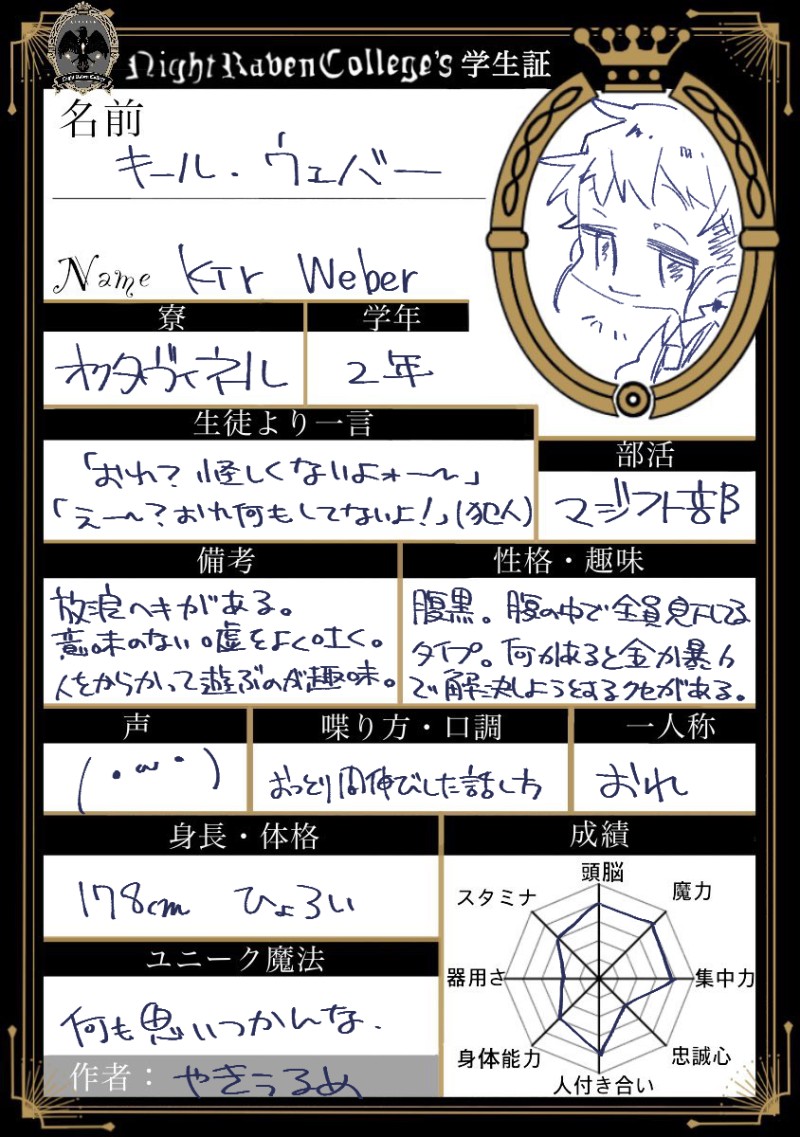 Night Raven College
Night Raven College's 学生証
名前
キール・ウェバー
Name Kir Weber
寮
学年
オクタヴィネル
2年
生徒より一言
「おれ？怪しくないよォ〜〜」
「え〜〜？おれ何もしてないよ！」(犯人)
部活
マジフト部
備考
放浪ヘキがある。
意味のない嘘をよく吐く。
人をからかって遊ぶのが趣味。
性格・趣味
腹黒。腹の中で全員見下してる
タイプ。何かあると金か暴力
で解決しようとするクセがある。
声
(・ω・)
喋り方・口調
おっとり間伸びした話し方
一人称
おれ
身長・体格
178cm ひょろい
成績
頭脳
魔力
集中力
忠誠心
人付き合い
身体能力
器用さ
スタミナ
ユニーク魔法
何も思いつかんな.
作者：やきうるめ